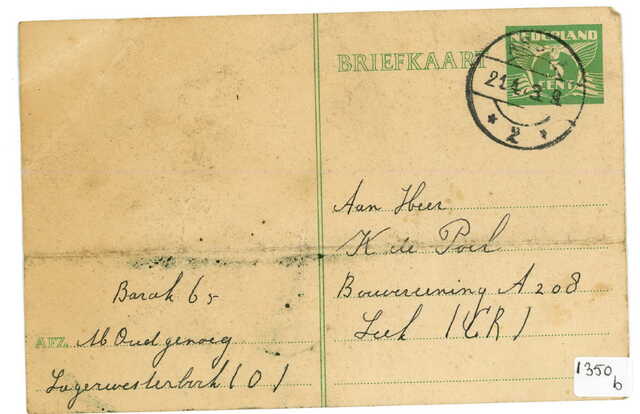 BRIEFKAART
NEDERLAND
5
CENT
2
Aan Heer
K de Poel
A 208
Leek (GR)
Barak 65
AFZ. M Oudgenoeg
Lagerwesterbork (D)
1350
b